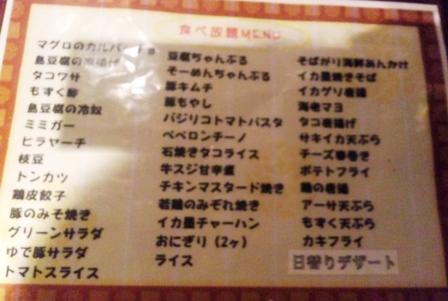 食べ放題MENU
マグロのカルパッチョ
島豆腐の唐揚げ
タコワサ
もずく酢
島豆腐の冷奴
ミミガー
ヒラヤーチ
枝豆
トンカツ
鶏皮餃子
豚のみそ焼き
グリーンサラダ
ゆで豚サラダ
トマトスライス
豆腐ちゃんぷる
そーめんちゃんぷる
豚キムチ
豚もやし
バジリコトマトパスタ
ペペロンチーノ
石焼きタコライス
牛スジ甘辛煮
チキンマスタード焼き
若鶏のみぞれ焼き
イカ墨チャーハン
おにぎり（2ヶ）
ライス
そばがり海鮮あんかけ
イカ墨焼きそば
イカゲソ唐揚
海老マヨ
タコ唐揚げ
サキイカ天ぷら
チーズ春巻き
ポテトフライ
鶏の唐揚
アーサ天ぷら
もずく天ぷら
カキフライ
日替りデザート